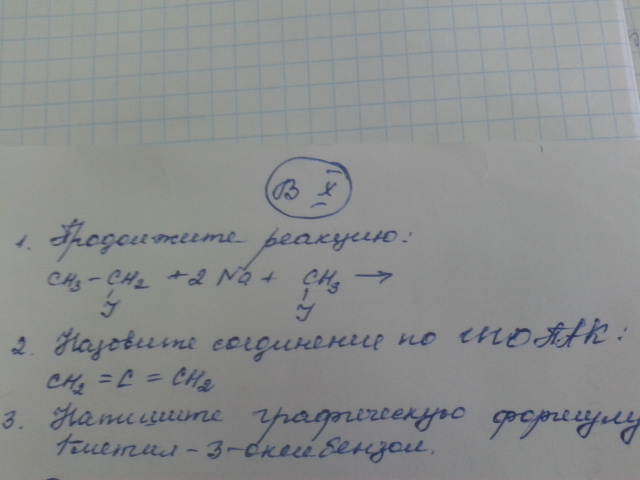 В X
1. Продолжите реакцию:
CH3 - CH2 + 2 Na + CH3 →
J J
2. Назовите соединение по ИЮПАК:
CH2 = C = CH2
3. Напишите графическую формулу
1 метил - 3 - оксибензол.